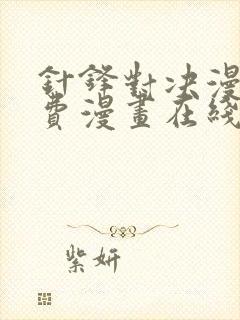 針鋒對決漫
費漫畫在綫
紫妍